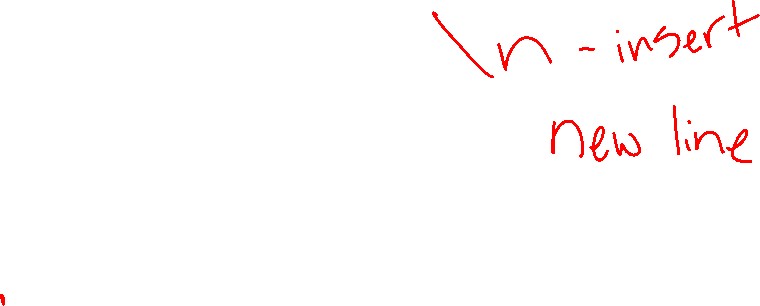 \n - insert
new line